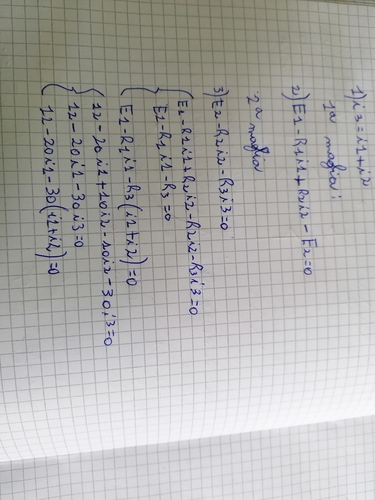 1) i3 = i1 + i2
1a maglia:
2) E1 - R1i1 + R2i2 - E2 = 0
2a maglia
3) E2 - R2i2 - R3i3 = 0
E1 - R1i1 + R2i2 - R2i2 - R3i3 = 0
E1 - R1i1 - R3 = 0
E1 - R1i1 - R3(i1+i2) = 0
12 - 20i1 + 10i2 - 10i2 - 30i3 = 0
12 - 20i1 - 30i3 = 0
12 - 20i1 - 30(i1+i2) = 0